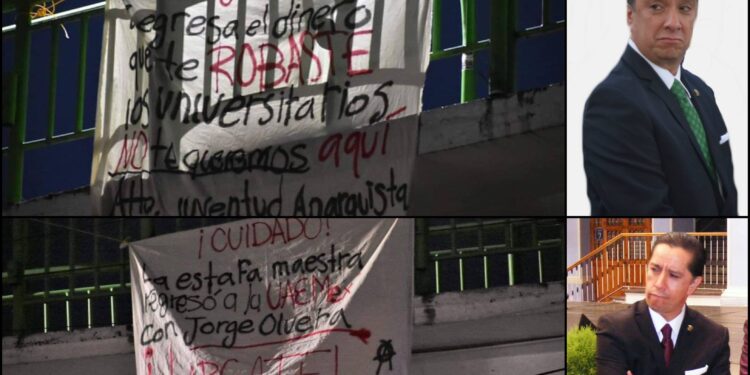 regresa el dinero
que te ROBASTE
los universitarios
NO te queremos AQUÍ
Atto. Juventud Anarquista
¡CUIDADO!
La estafa maestra
regresó a la UAEMex
con Jorge Olvera
A